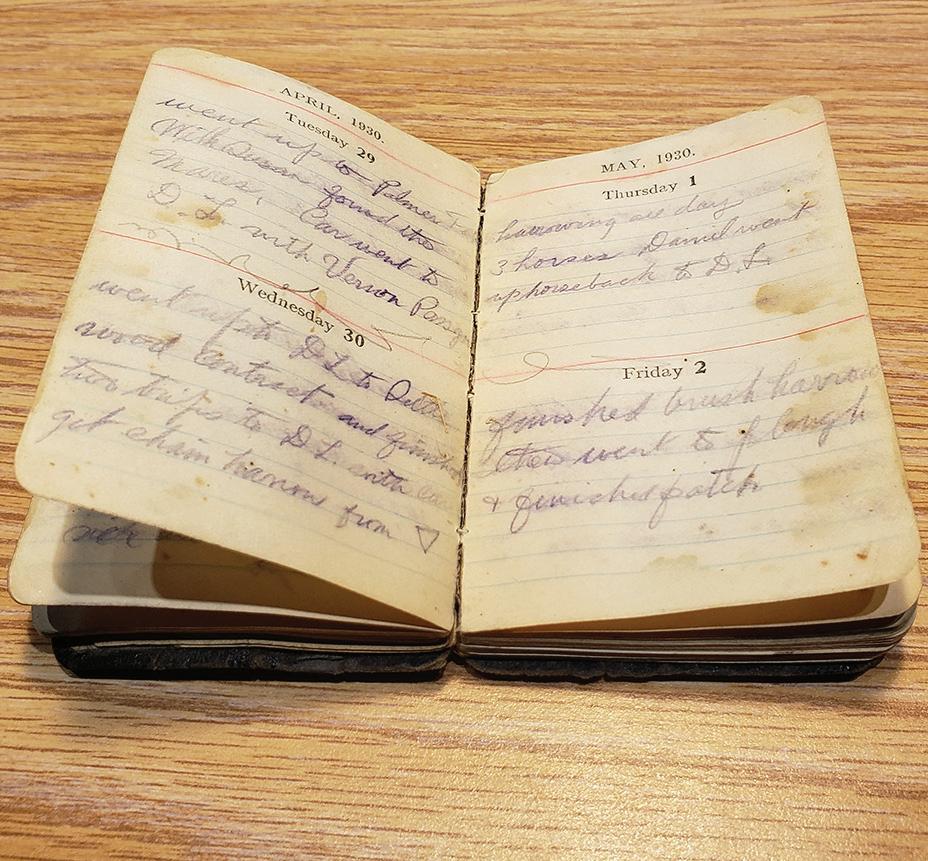 APRIL, 1930.
Tuesday 29
went up to Palmer
With Queen found the
Mares. Carr went to
D.L with Vernon
Wednesday 30
went up to D.L to
wood contract and finish
two trips to D.L. with
get chain harrow from ▽
side
MAY, 1930.
Thursday 1
harrowing all day
3 horses Daniel went
up horseback to D.L.
Friday 2
finished brush harrow
then went to plough
& finished patch